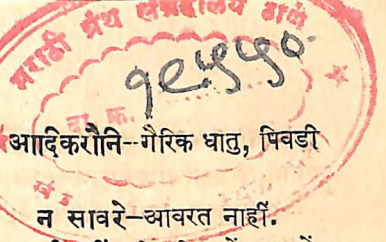 मराठी ग्रंथ संग्रहालय ठाणें
१९५५०
दा. क्र.
आदिकरौनि--गैरिक धातु, पिवडी
न सावरे--आवरत नाहीं.